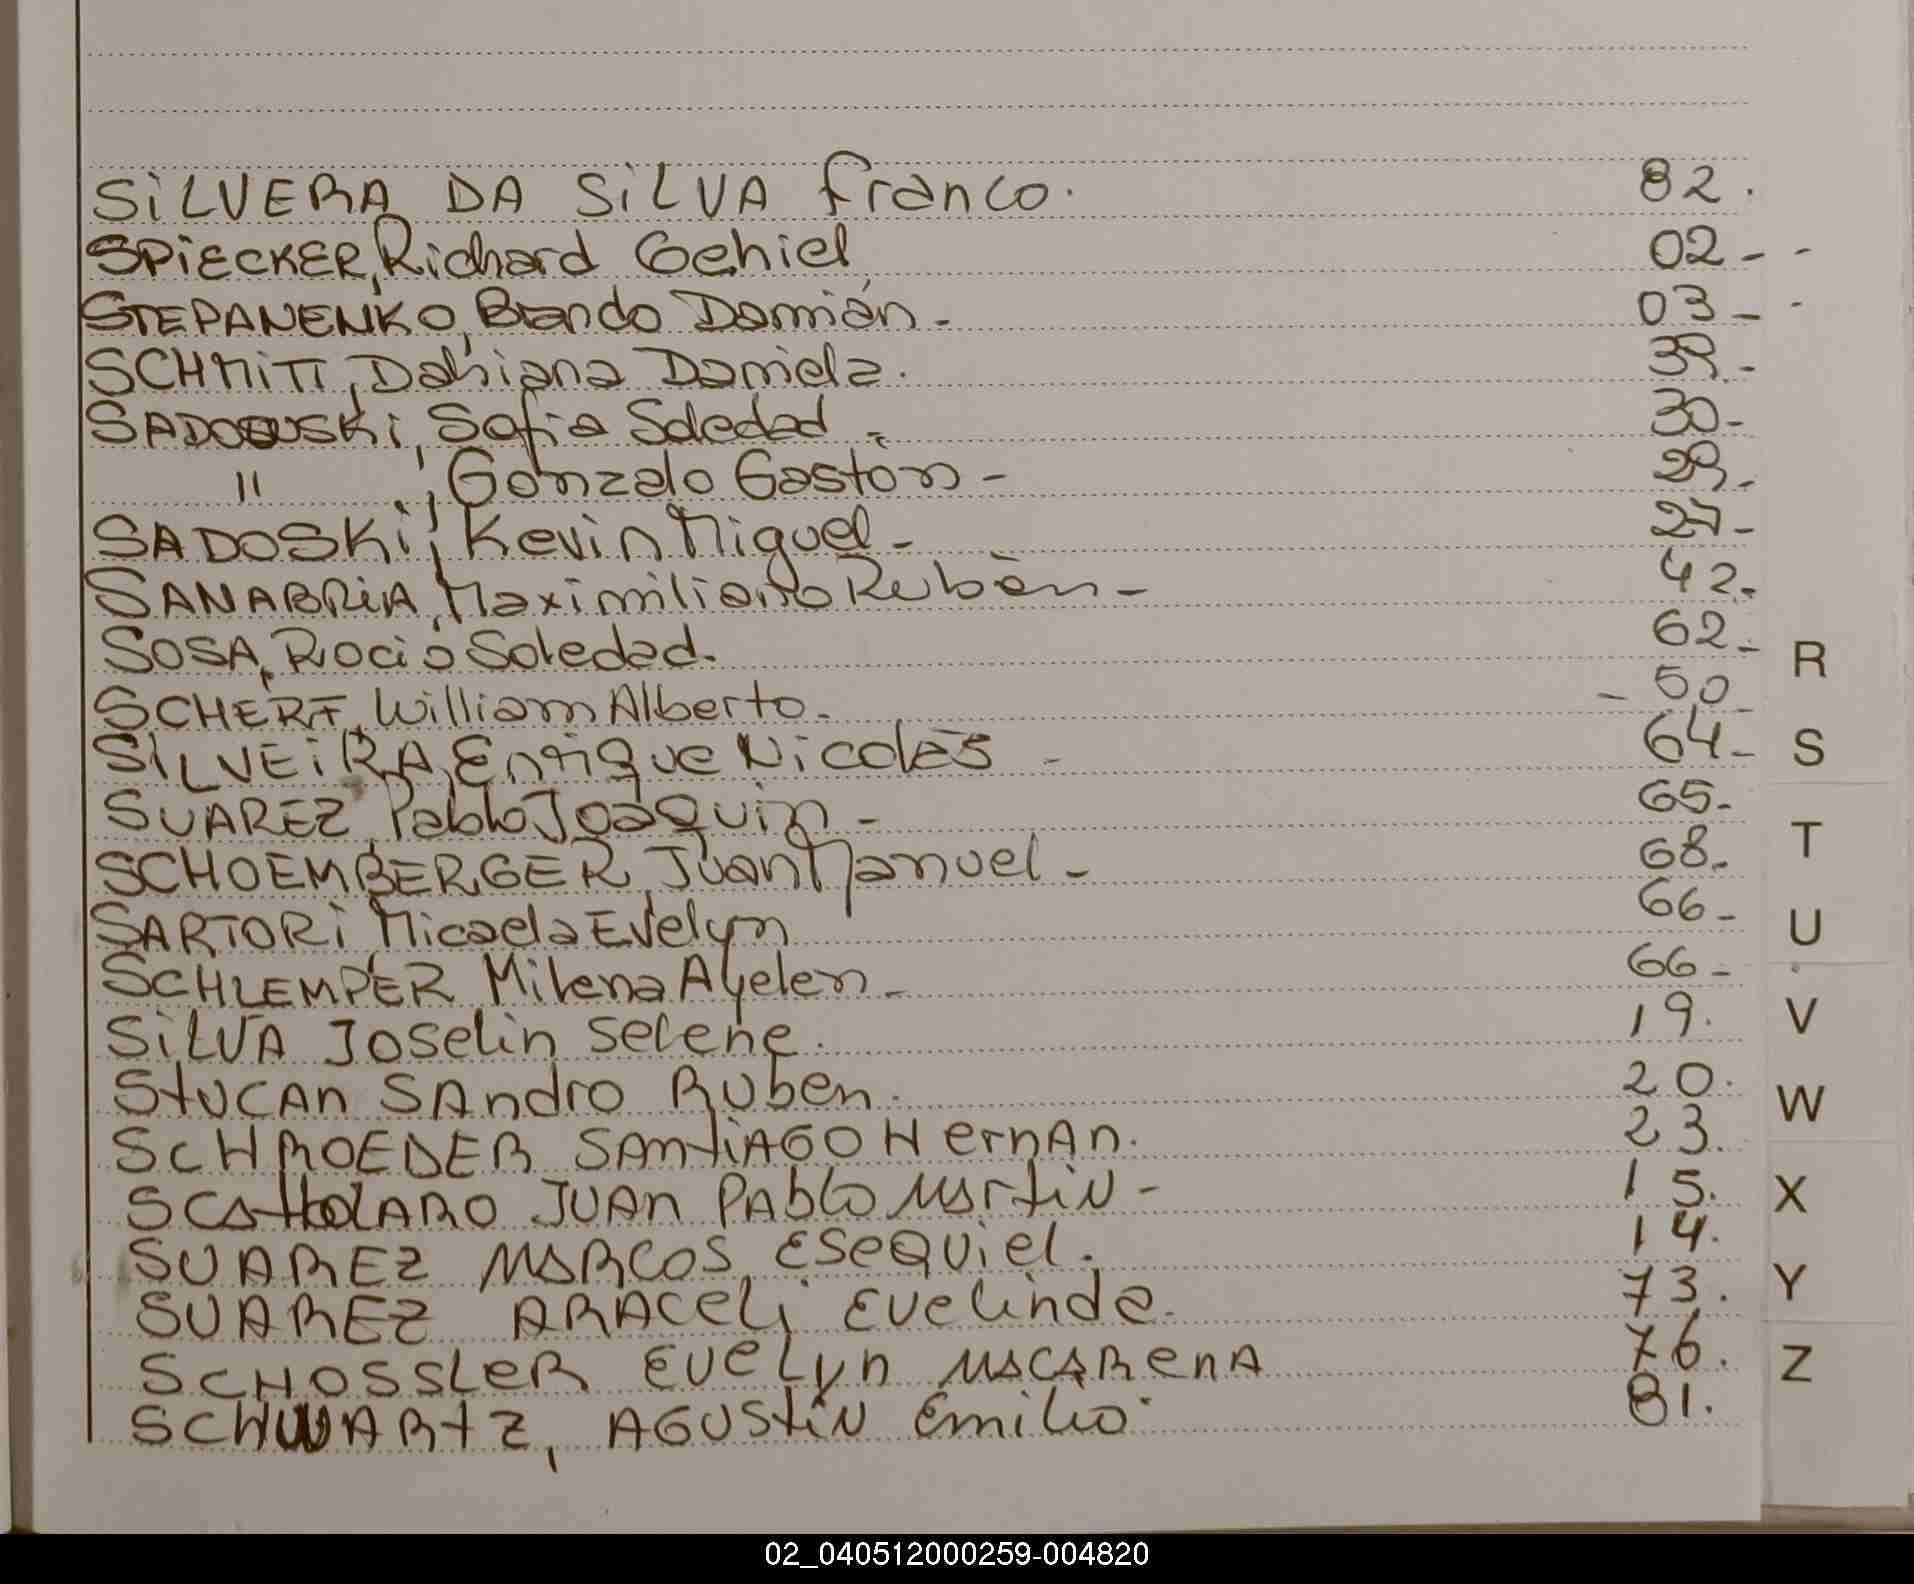 SILVERA DA SILVA Franco. 82.
SPIECKER, Richard Gehiel 02 - -
STEPANENKO, Brando Damián - 03 - -
SCHMITT, Dahiana Daniela. 39.-
SADOWSKI, Sofia Soledad - 30-
" , Gonzalo Gastón - 29.
SADOSKI, Kevin Miguel - 27-
SANABRIA, Maximiliano Rubén - 42.
SOSA, Rocio Soledad. 62-
SCHERF, William Alberto. - 50
SILVEIRA, Enrique Nicolás - 64-
SUAREZ, Pablo Joaquin - 65-
SCHOEMBERGER, Juan Manuel - 68.
SARTORI, Micaela Evelyn 66-
SCHLEMPER Milena Ayelen - 66-
SILVA Joselin Selene. 19.
STUCAN SANDRO Ruben. 20.
SCHROEDER SANTIAGO HernAn. 23.
SCAttoLARO JUAN PABLO MARtiN - 15.
SUAREZ MARCOS ESEQUIEL. 14.
SUAREZ ARACELI EVELINDA. 73.
SCHOSSLER EVELYN MACARENA 76.
SCHWARTZ, AGUSTIN Emilio. 81.
R
S
T
U
V
W
X
Y
Z
02_040512000259-004820